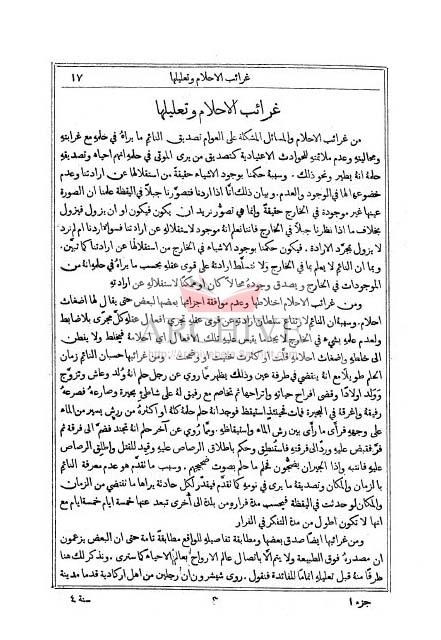 غرائب الاحلام وتعليلها ١٧
غرائب الاحلام وتعليلها
من غرائب الاحلام والمسائل المشكلة على العوام تصديق النائم ما يراهُ في حلمهِ مع غرابتهِ
ومحاليتهِ وعدم ملائمتهِ للحوادث الاعتيادية كتصديق من يرى الموتى في حلمهِ انهم احياء وتصديقهِ
حلمهُ انهُ يطير ونحو ذلك. وسببهُ حكمنا بوجود الاشياء حقيقةً من استقلالها عن ارادتنا وعدم
خضوعها لها في الوجود والعدم. وبيان ذلك انَّا اذا اردنا فتصوَّرنا جبلاً في اليقظة علمنا ان الصورة
عينها غير موجودة في الخارج حقيقةً وانما هي تصوُّر نريد ان يكون فيكون او ان يزول فيزول
بخلاف ما اذا نظرنا جبلاً في الخارج فاننا نعلم انهُ موجود لاستقلالهِ عن ارادتنا فسواء اردنا ام لم نرد
لا يزول بمجرَّد الارادة. فيكون حكمنا بوجود الاشياء في الخارج من استقلالها عن ارادتنا كما تبيَّن.
وبما ان النائم لا يعلم بما في الخارج ولا تتسلَّط ارادتهُ على قوى عقلهِ يحسب ما يراهُ في حلمهِ انهُ من
الموجودات في الخارج ويصدق وجودهُ محالاً كان او ممكنًا لاستقلالهِ عن ارادتهِ
ومن غرائب الاحلام اختلاطها وعدم موافقة اجزائها بعضها لبعض حتى يقال لها اضغاث
احلام. وسببهُ ان النائم لارتفاع سلطان ارادتهِ عن قوى عقلهِ تجري افعال عقلهِ كلَّ مجرى بلا ضابط
ولعدم علمهِ بشيء في الخارج لا يجد ما يقيس عليهِ تلك الافعال اي احلامهُ فيخلط ولا يفطن
الى خلطهِ واضغاث احلامهِ قلَّت او كثرت خفيت او اتضحت. ومن غرائبها حسبان النائم زمان
الحلم طويلاً مع انهُ ينقضي في طرفة عين وذلك يظهر مما روي عن رجل حلم انهُ وُلد وعاش وتزوَّج
ووَلد اولادًا وقضى افراح حياتهِ واتراحها ثم تخاصم مع رفيق لهُ على شاطئ بحيرة وصارعهُ فصرعهُ
رفيقهُ واغرقهُ في البحيرة فمات فحينئذٍ استيقظ فوجد انهُ حلم حلمهُ كلهُ او اكثرهُ من رش يسير من الماء
على وجههِ فرأى ما رأى بين رش الماء واستيقاظهِ. وما روي عن آخر حلم انهُ تجند فضم الى فرقة ثم
فرَّ فقبض عليهِ وردَّ الى فرقتهِ فاستنطق وحكم باطلاق الرصاص عليهِ وقيد للقتل واطلق الرصاص
عليهِ فانتبه واذا الجيران يضجُّون فحلم ما حلم بصوت ضجيجهم. وسبب ما تقدَّم هو عدم معرفة النائم
بالزمان والمكان وتصديقهُ ما يرى في نومهِ كما تقدَّم فيقدِّر لكل حادثة يراها ما تقتضي من الزمان
والمكان لو حدثت في اليقظة فيحسب مدة فراره من بلدة الى أُخرى تبعد عنها خمسة ايام خمسة ايام مع
انها لا تكون اطول من مدة التفكر في الفرار
ومن غرائبها ايضًا صدق بعضها ومطابقة تفاصيلهِ للواقع مطابقة تامة حتى ان البعض يزعمون
ان مصدرهُ فوق الطبيعة ولا يتم الَّا باتصال عالم الارواح بعالم الاحياء كما سترى. ونذكر لك هنا
طرفًا منهُ قبل تعليلهِ اتمامًا للفائدة فنقول. روى شيشرون ان رجلين من اهل اركادية قدما مدينة
جزء ١ ٣ سنة ٤